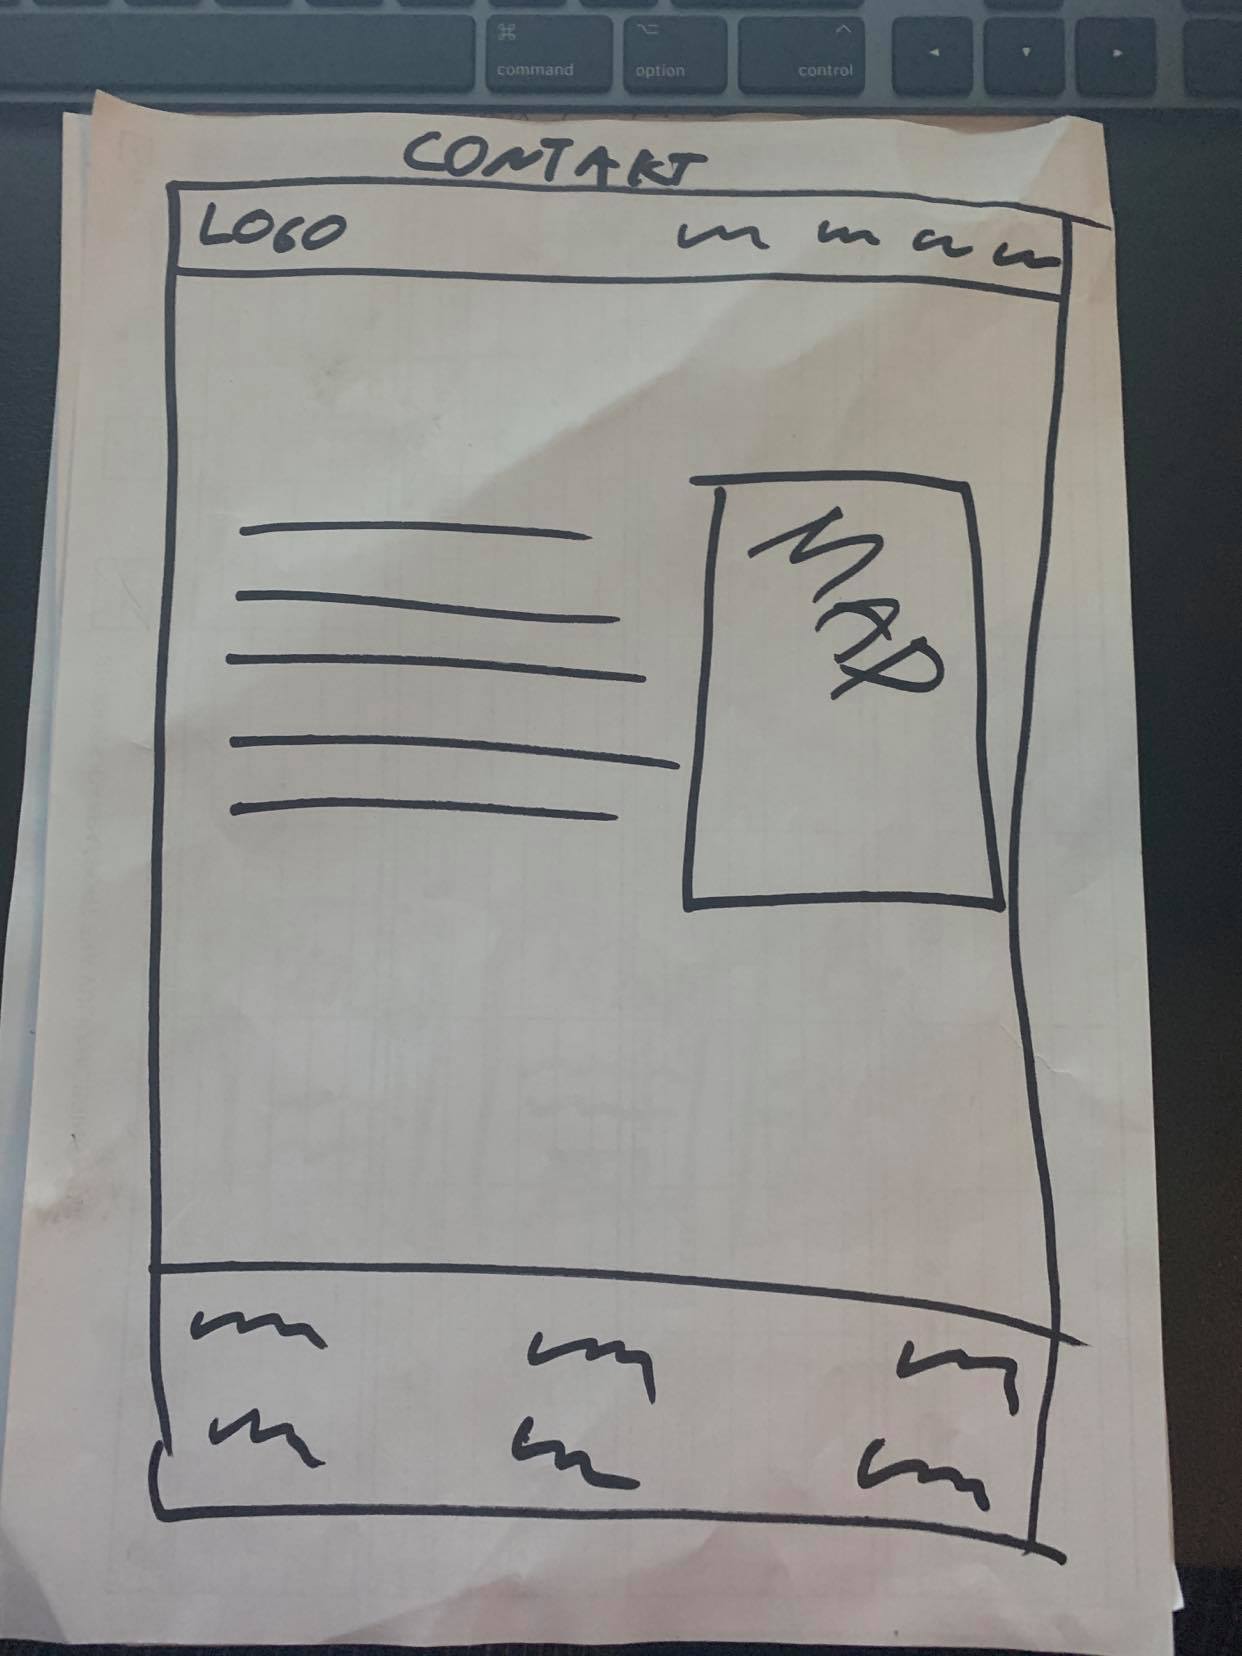 ⌘ ⌥ ^
command option control ◂ ▾ ▸
CONTAKT
LOGO
MAP